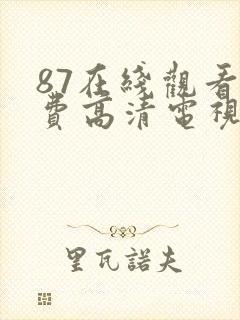 87在綫觀看
費高清電視
里瓦諾夫